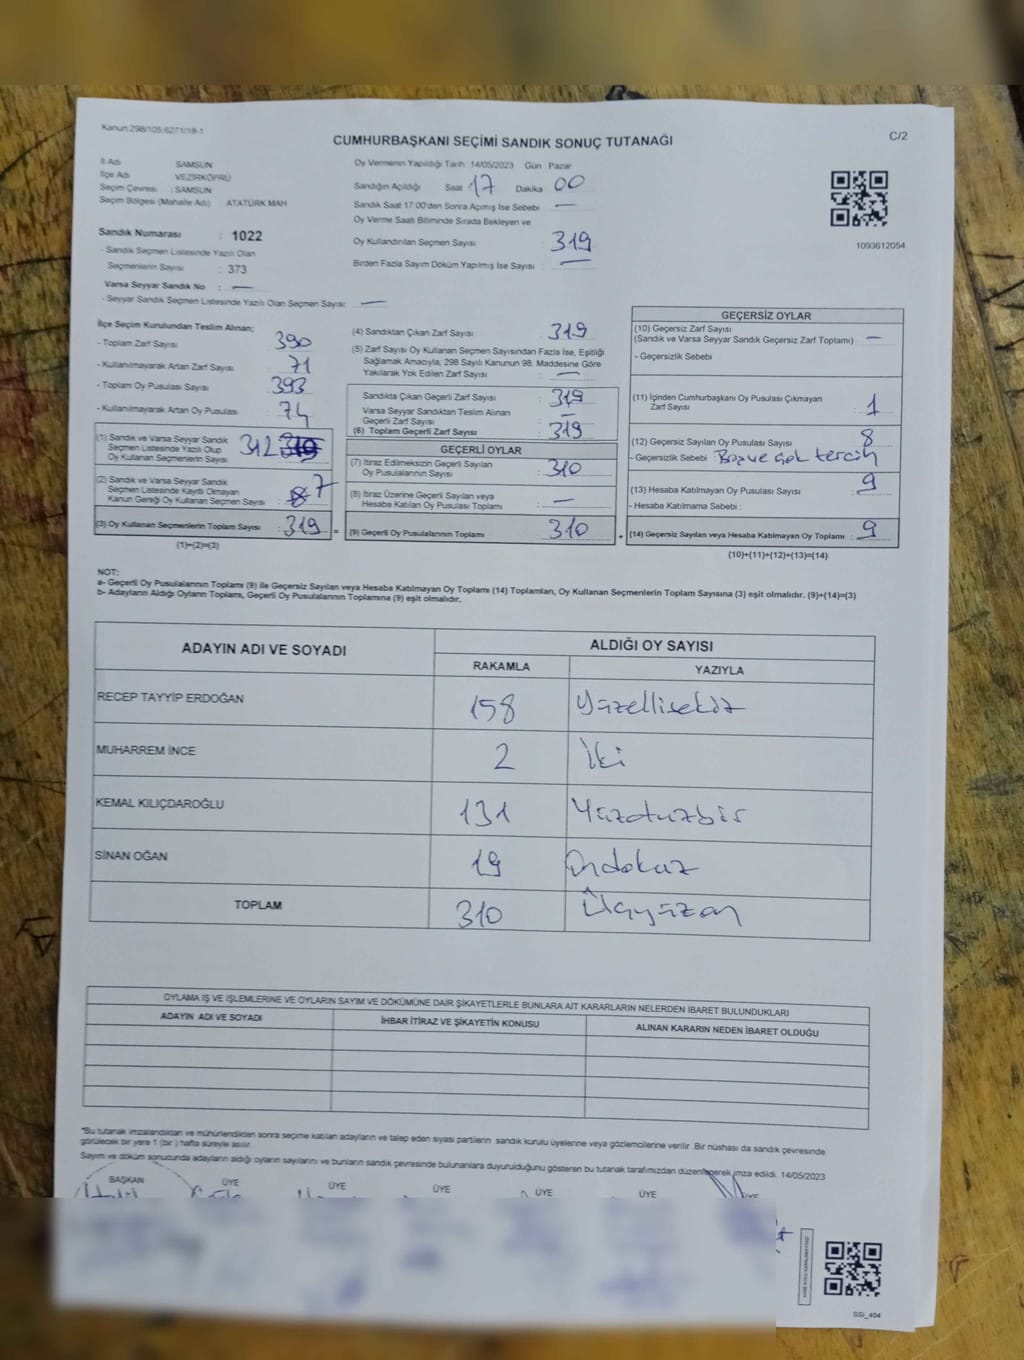 Kanun:298/105,6271/19-1
C/2
CUMHURBAŞKANI SEÇİMİ SANDIK SONUÇ TUTANAĞI
İl Adı SAMSUN
İlçe Adı VEZİRKÖPRÜ
Seçim Çevresi : SAMSUN
Seçim Bölgesi (Mahalle Adı) ATATÜRK MAH
Sandık Numarası : 1022
- Sandık Seçmen Listesinde Yazılı Olan
Seçmenlerin Sayısı : 373
Varsa Seyyar Sandık No : —
- Seyyar Sandık Seçmen Listesinde Yazılı Olan Seçmen Sayısı: —
Oy Vermenin Yapıldığı Tarih 14/05/2023 Gün : Pazar
Sandığın Açıldığı Saat 17 Dakika 00
Sandık Saat 17:00'den Sonra Açımış İse Sebebi : —
Oy Verme Saati Bitiminde Sırada Bekleyen ve
Oy Kullandırılan Seçmen Sayısı : 319
Birden Fazla Sayım Döküm Yapılmış İse Sayısı : —
1093612054
İlçe Seçim Kurulundan Teslim Alınan;
- Toplam Zarf Sayısı : 390
- Kullanılmayarak Artan Zarf Sayısı : 71
- Toplam Oy Pusulası Sayısı : 393
- Kullanılmayarak Artan Oy Pusulası : 74
(1) Sandık ve Varsa Seyyar Sandık
Seçmen Listesinde Yazılı Olup
Oy Kullanan Seçmenlerin Sayısı : 312
(2) Sandık ve Varsa Seyyar Sandık
Seçmen Listesinde Kayıtlı Olmayan
Kanun Gereği Oy Kullanan Seçmen Sayısı : 7
(3) Oy Kullanan Seçmenlerin Toplam Sayısı : 319 =
(1)+(2)=(3)
(4) Sandıktan Çıkan Zarf Sayısı : 319
(5) Zarf Sayısı Oy Kullanan Seçmen Sayısından Fazla İse, Eşitliği
Sağlamak Amacıyla, 298 Sayılı Kanunun 98. Maddesine Göre
Yakılarak Yok Edilen Zarf Sayısı : —
Sandıkta Çıkan Geçerli Zarf Sayısı : 319
Varsa Seyyar Sandıktan Teslim Alınan
Geçerli Zarf Sayısı : —
(6) Toplam Geçerli Zarf Sayısı : 319
GEÇERLİ OYLAR
(7) İtiraz Edilmeksizin Geçerli Sayılan
Oy Pusulalarının Sayısı : 310
(8) İtiraz Üzerine Geçerli Sayılan veya
Hesaba Katılan Oy Pusulası Toplamı : —
(9) Geçerli Oy Pusulalarının Toplamı : 310 +
GEÇERSİZ OYLAR
(10) Geçersiz Zarf Sayısı
(Sandık ve Varsa Seyyar Sandık Geçersiz Zarf Toplamı) : —
- Geçersizlik Sebebi
(11) İçinden Cumhurbaşkanı Oy Pusulası Çıkmayan
Zarf Sayısı : 1
(12) Geçersiz Sayılan Oy Pusulası Sayısı : 8
- Geçersizlik Sebebi Boş ve çok tercih
(13) Hesaba Katılmayan Oy Pusulası Sayısı : 9
- Hesaba Katılmama Sebebi :
(14) Geçersiz Sayılan veya Hesaba Katılmayan Oy Toplamı : 9
(10)+(11)+(12)+(13)=(14)
NOT:
a- Geçerli Oy Pusulalarının Toplamı (9) ile Geçersiz Sayılan veya Hesaba Katılmayan Oy Toplamı (14) Toplamları, Oy Kullanan Seçmenlerin Toplam Sayısına (3) eşit olmalıdır. (9)+(14)=(3)
b- Adayların Aldığı Oyların Toplamı, Geçerli Oy Pusulalarının Toplamına (9) eşit olmalıdır.
ADAYIN ADI VE SOYADI
ALDIĞI OY SAYISI
RAKAMLA YAZIYLA
RECEP TAYYİP ERDOĞAN 158 Yüzellisekiz
MUHARREM İNCE 2 İki
KEMAL KILIÇDAROĞLU 131 Yüzotuzbir
SİNAN OĞAN 19 Ondokuz
TOPLAM 310 Üçyüzon
OYLAMA İŞ VE İŞLEMLERİNE VE OYLARIN SAYIM VE DÖKÜMÜNE DAİR ŞİKAYETLERLE BUNLARA AİT KARARLARIN NELERDEN İBARET BULUNDUKLARI
ADAYIN ADI VE SOYADI İHBAR İTİRAZ VE ŞİKAYETİN KONUSU ALINAN KARARIN NEDEN İBARET OLDUĞU
"Bu tutanak imzalandıktan ve mühürlendikten sonra seçime katılan adayların ve talep eden siyasi partilerin sandık kurulu üyelerine veya gözlemcilerine verilir. Bir nüshası da sandık çevresinde
görülecek bir yere 1 (bir) hafta süreyle asılır.
Sayım ve döküm sonucunda adayların aldığı oyların sayılarını ve bunların sandık çevresinde bulunanlara duyurulduğunu gösteren bu tutanak tarafımızdan düzenlenerek imza edildi. 14/05/2023
BAŞKAN ÜYE ÜYE ÜYE ÜYE ÜYE ÜYE
SSI_404